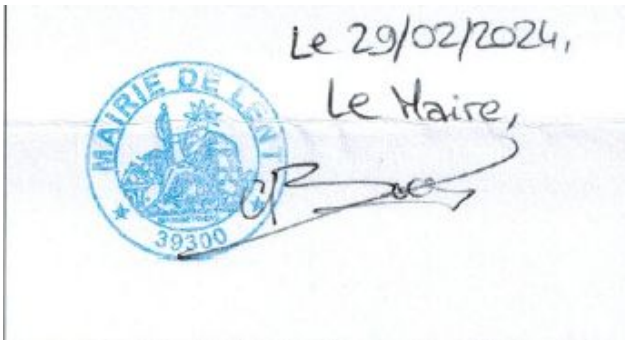 Le 29/02/2024,
Le Maire,
MAIRIE DE LENT
39300